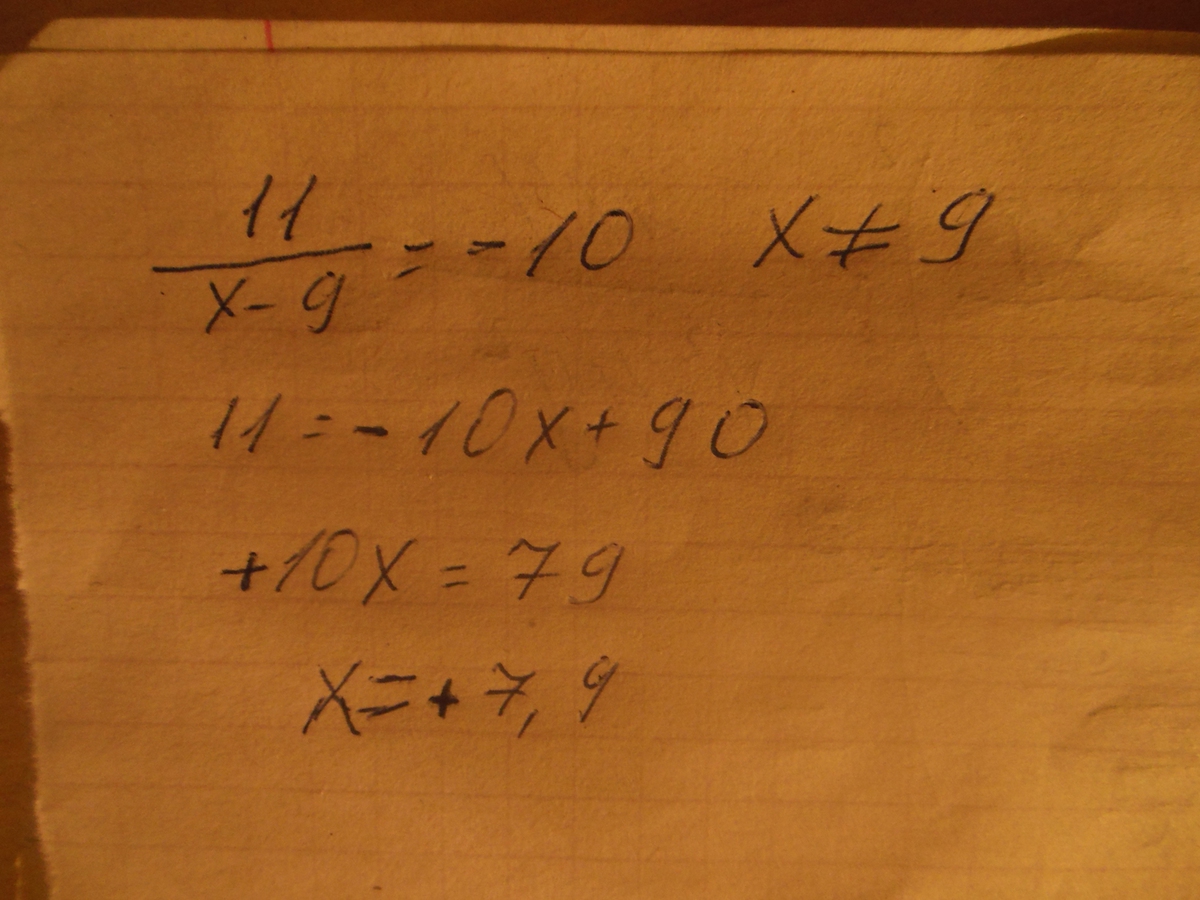 11/(x-9) = -10 x ≠ 9
11 = -10x + 90
+10x = 79
x = +7,9